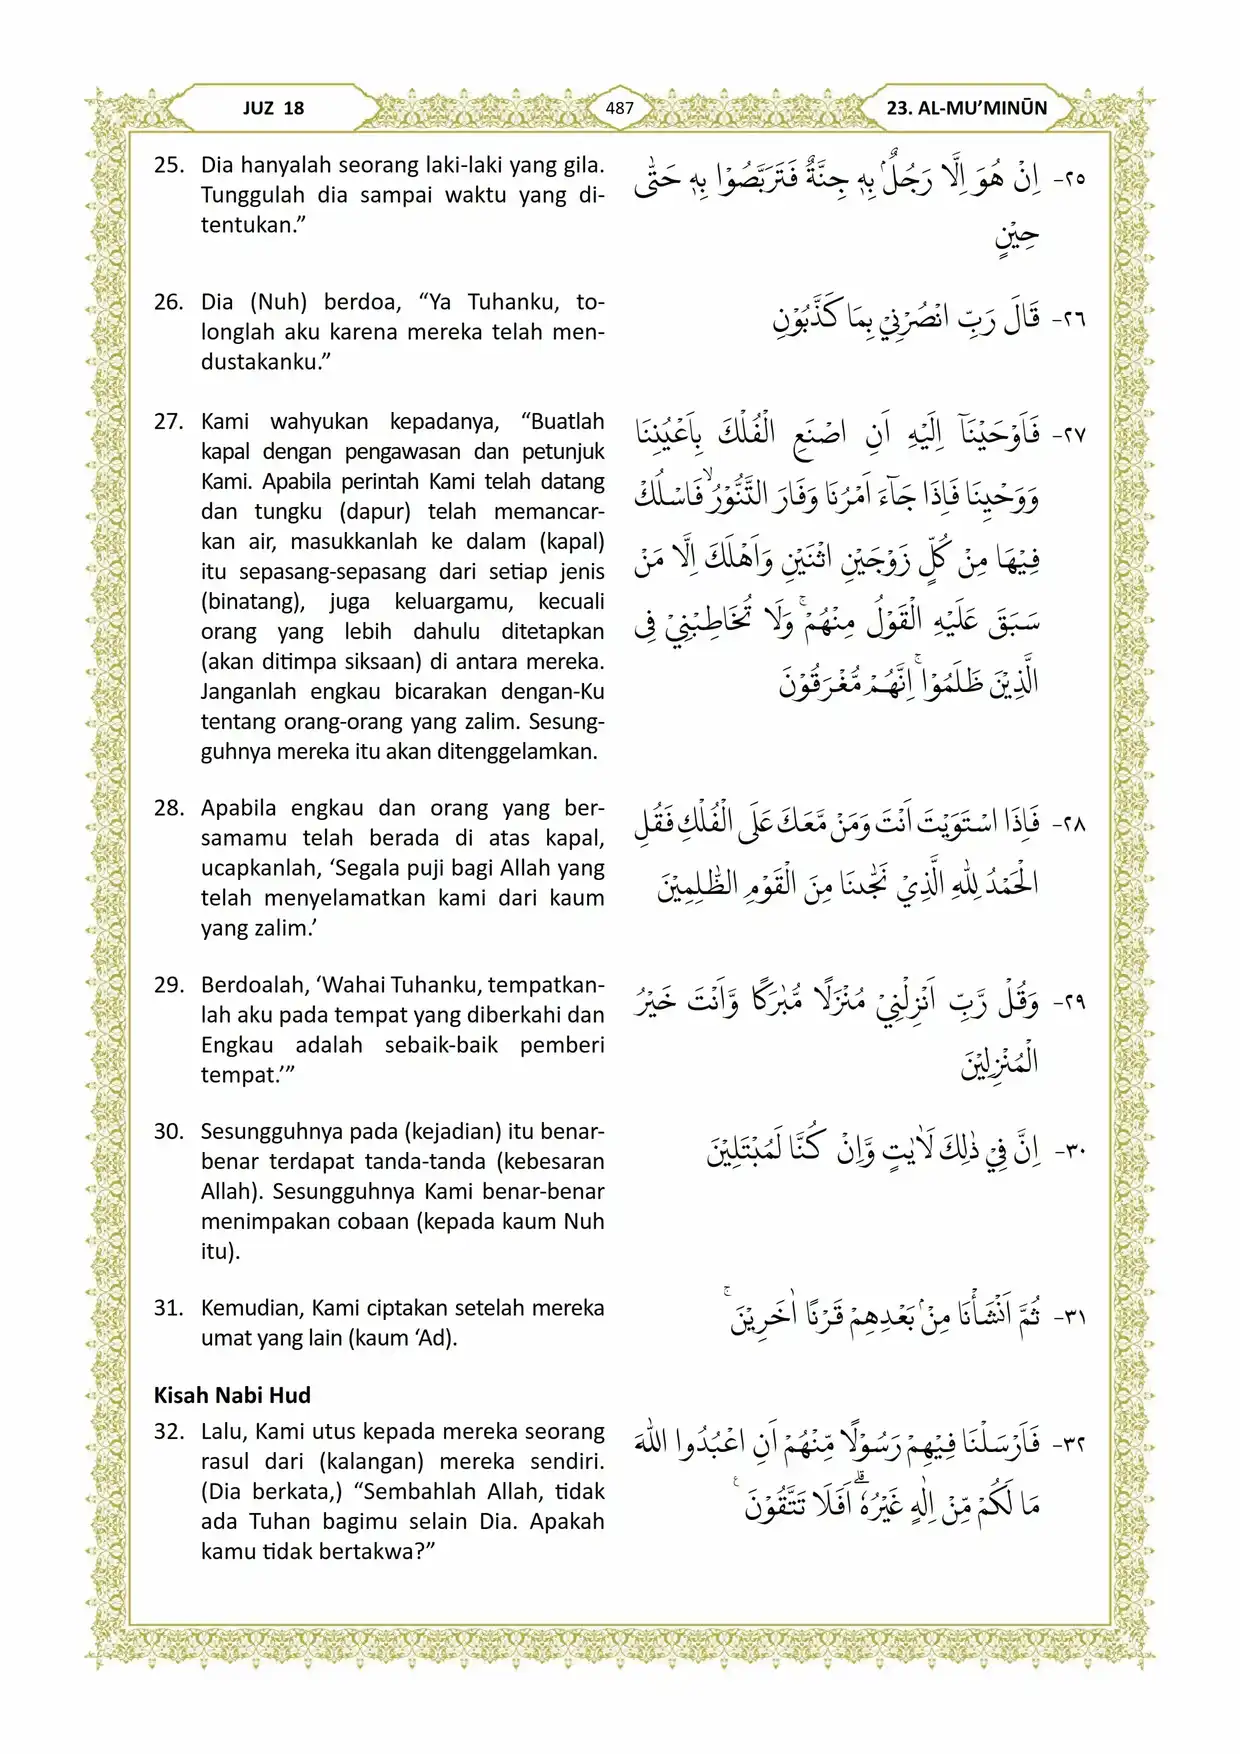 JUZ 18
487
23. AL-MU’MINŪN
25. Dia hanyalah seorang laki-laki yang gila.
Tunggulah dia sampai waktu yang di-
tentukan.”
٢٥- اِنْ هُوَ اِلَّا رَجُلٌۢ بِهٖ جِنَّةٌ فَتَرَبَّصُوْا بِهٖ حَتّٰى
حِيْنٍ
26. Dia (Nuh) berdoa, “Ya Tuhanku, to-
longlah aku karena mereka telah men-
dustakanku.”
٢٦- قَالَ رَبِّ انْصُرْنِيْ بِمَا كَذَّبُوْنِ
27. Kami wahyukan kepadanya, “Buatlah
kapal dengan pengawasan dan petunjuk
Kami. Apabila perintah Kami telah datang
dan tungku (dapur) telah memancar-
kan air, masukkanlah ke dalam (kapal)
itu sepasang-sepasang dari setiap jenis
(binatang), juga keluargamu, kecuali
orang yang lebih dahulu ditetapkan
(akan ditimpa siksaan) di antara mereka.
Janganlah engkau bicarakan dengan-Ku
tentang orang-orang yang zalim. Sesung-
guhnya mereka itu akan ditenggelamkan.
٢٧- فَاَوْحَيْنَآ اِلَيْهِ اَنِ اصْنَعِ الْفُلْكَ بِاَعْيُنِنَا
وَوَحْيِنَا فَاِذَا جَاۤءَ اَمْرُنَا وَفَارَ التَّنُّوْرُۙ فَاسْلُكْ
فِيْهَا مِنْ كُلٍّ زَوْجَيْنِ اثْنَيْنِ وَاَهْلَكَ اِلَّا مَنْ
سَبَقَ عَلَيْهِ الْقَوْلُ مِنْهُمْۚ وَلَا تُخَاطِبْنِيْ فِى
الَّذِيْنَ ظَلَمُوْاۚ اِنَّهُمْ مُّغْرَقُوْنَ
28. Apabila engkau dan orang yang ber-
samamu telah berada di atas kapal,
ucapkanlah, ‘Segala puji bagi Allah yang
telah menyelamatkan kami dari kaum
yang zalim.’
٢٨- فَاِذَا اسْتَوَيْتَ اَنْتَ وَمَنْ مَّعَكَ عَلَى الْفُلْكِ فَقُلِ
الْحَمْدُ لِلّٰهِ الَّذِيْ نَجّٰىنَا مِنَ الْقَوْمِ الظّٰلِمِيْنَ
29. Berdoalah, ‘Wahai Tuhanku, tempatkan-
lah aku pada tempat yang diberkahi dan
Engkau adalah sebaik-baik pemberi
tempat.’”
٢٩- وَقُلْ رَّبِّ اَنْزِلْنِيْ مُنْزَلًا مُّبٰرَكًا وَّاَنْتَ خَيْرُ
الْمُنْزِلِيْنَ
30. Sesungguhnya pada (kejadian) itu benar-
benar terdapat tanda-tanda (kebesaran
Allah). Sesungguhnya Kami benar-benar
menimpakan cobaan (kepada kaum Nuh
itu).
٣٠- اِنَّ فِيْ ذٰلِكَ لَاٰيٰتٍ وَّاِنْ كُنَّا لَمُبْتَلِيْنَ
31. Kemudian, Kami ciptakan setelah mereka
umat yang lain (kaum ‘Ad).
٣١- ثُمَّ اَنْشَأْنَا مِنْۢ بَعْدِهِمْ قَرْنًا اٰخَرِيْنَ ۚ
Kisah Nabi Hud
32. Lalu, Kami utus kepada mereka seorang
rasul dari (kalangan) mereka sendiri.
(Dia berkata,) “Sembahlah Allah, tidak
ada Tuhan bagimu selain Dia. Apakah
kamu tidak bertakwa?”
٣٢- فَاَرْسَلْنَا فِيْهِمْ رَسُوْلًا مِّنْهُمْ اَنِ اعْبُدُوا اللّٰهَ
مَا لَكُمْ مِّنْ اِلٰهٍ غَيْرُهٗۗ اَفَلَا تَتَّقُوْنَ ࣖ